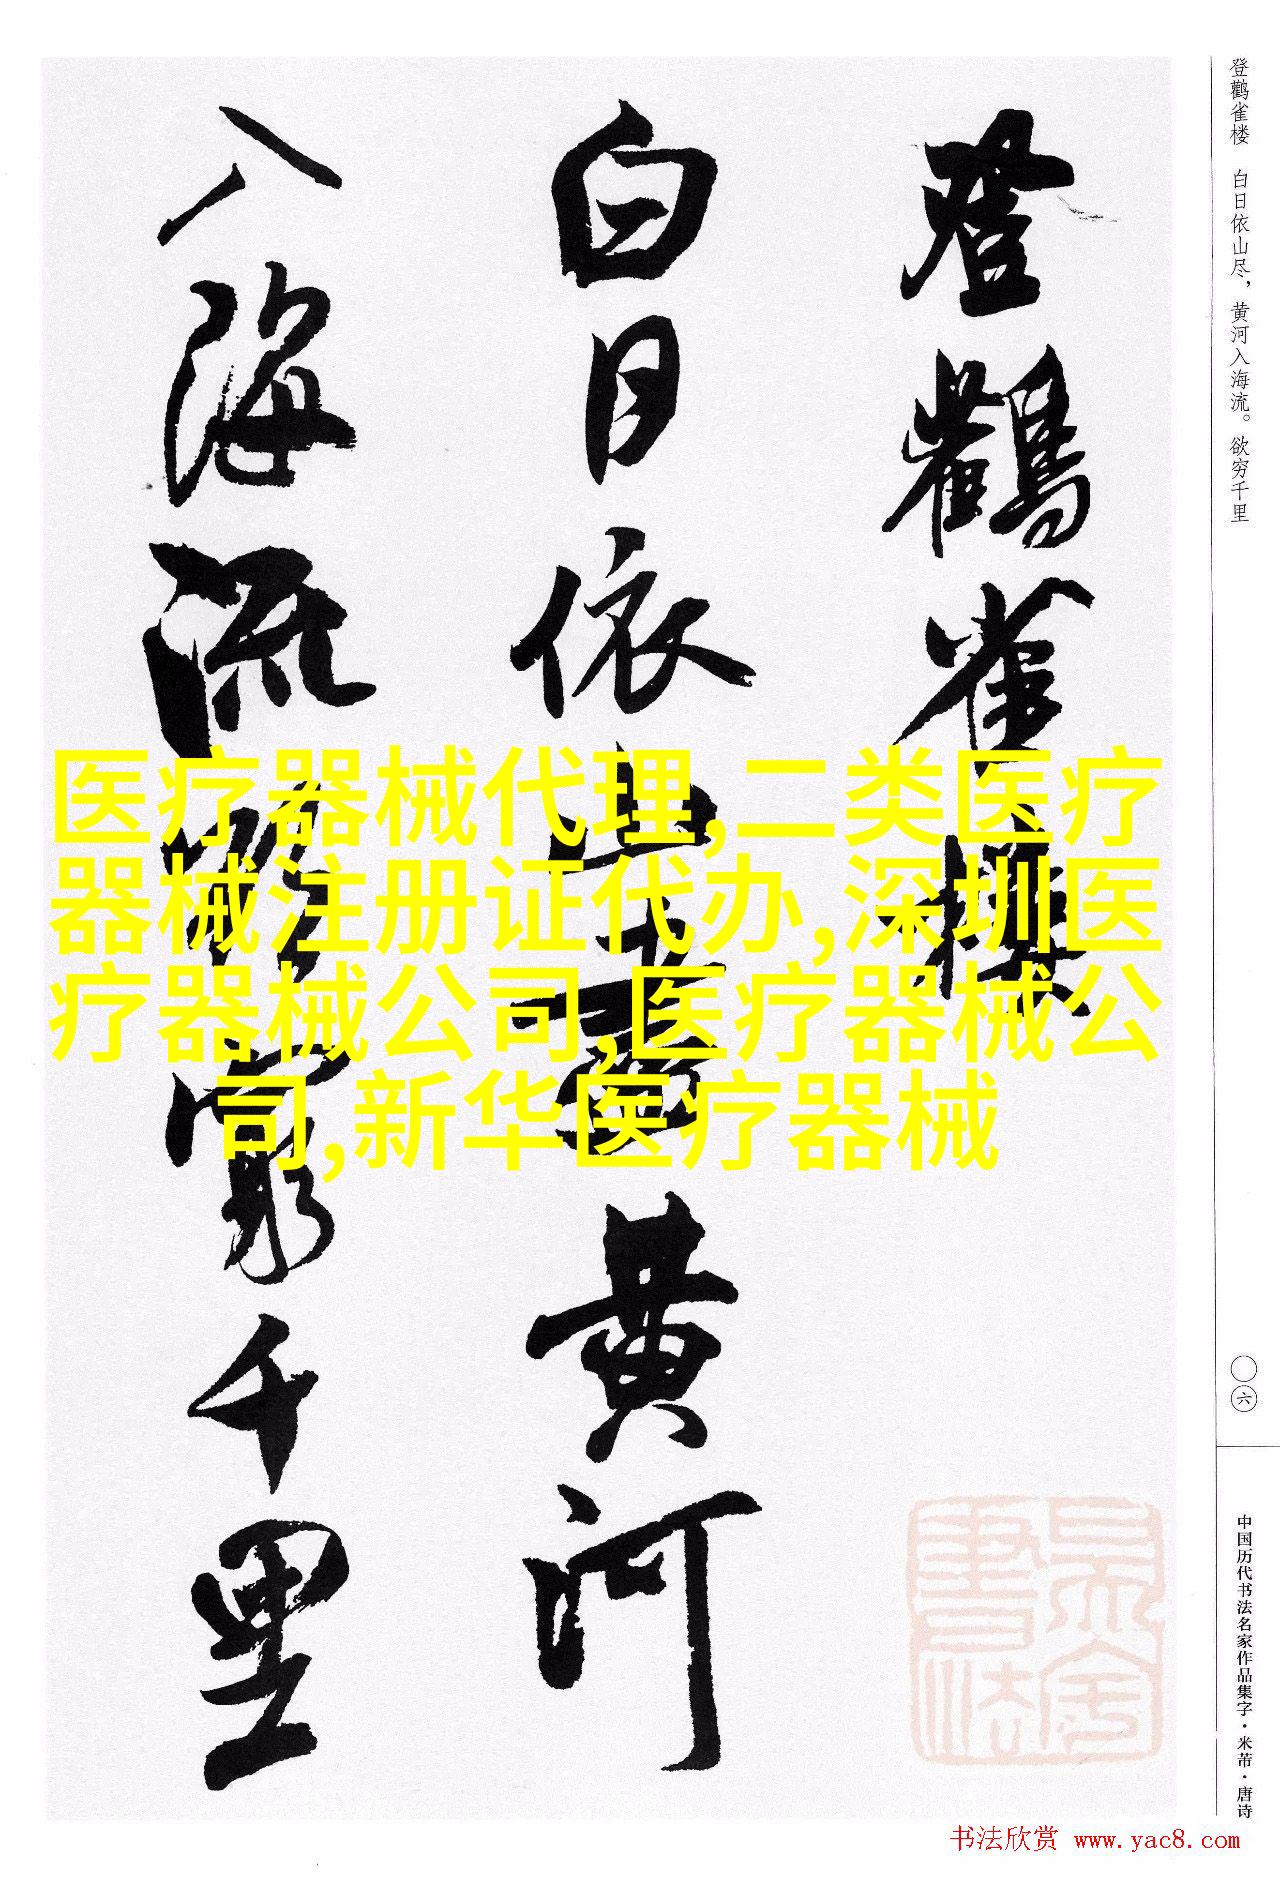 登鹳雀楼　白日依山尽，黄河入海流。欲穷千里
登鸛雀樓
白日依山盡黄河
入海流欲窮千里
医疗器械代理,二类医疗
器械注册证代办,深圳医
疗器械公司,医疗器械公
司,新华医疗器械
〇六
中国历代书法名家作品集字·米芾·唐诗
书法欣赏 www.yac8.com